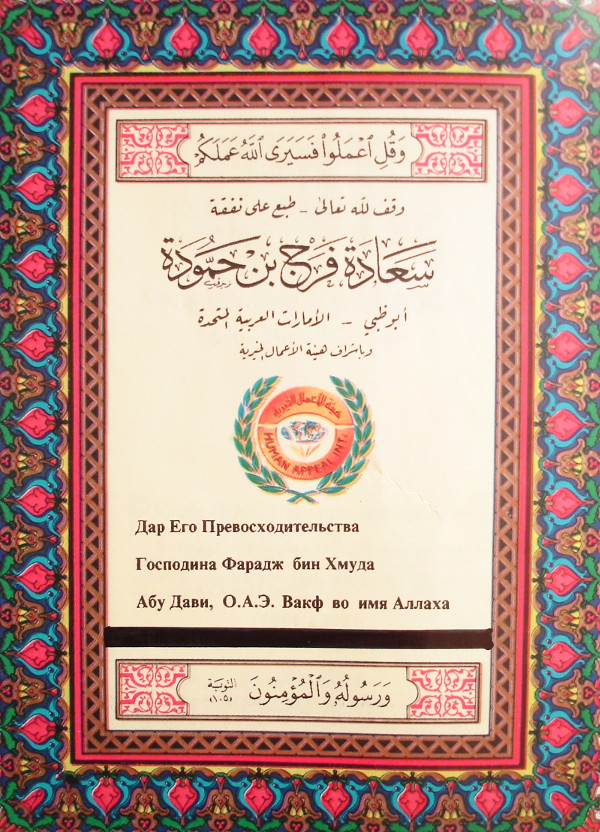 وَقُلِ ٱعْمَلُوا۟ فَسَيَرَى ٱللَّهُ عَمَلَكُمْ
وقف لله تعالى - طبع على نفقة
سَعَادَة فَرَج بِن حَمُّودَة
أبوظبي - الأمارات العربية المتحدة
وبإشراف هيئة الأعمال الخيرية
هيئة الأعمال الخيرية
HUMAN APPEAL INT.
Дар Его Превосходительства
Господина Фарадж бин Хмуда
Абу Дави, О.А.Э. Вакф во имя Аллаха
وَرَسُولُهُۥ وَٱلْمُؤْمِنُونَ التوبة (١٠٥)